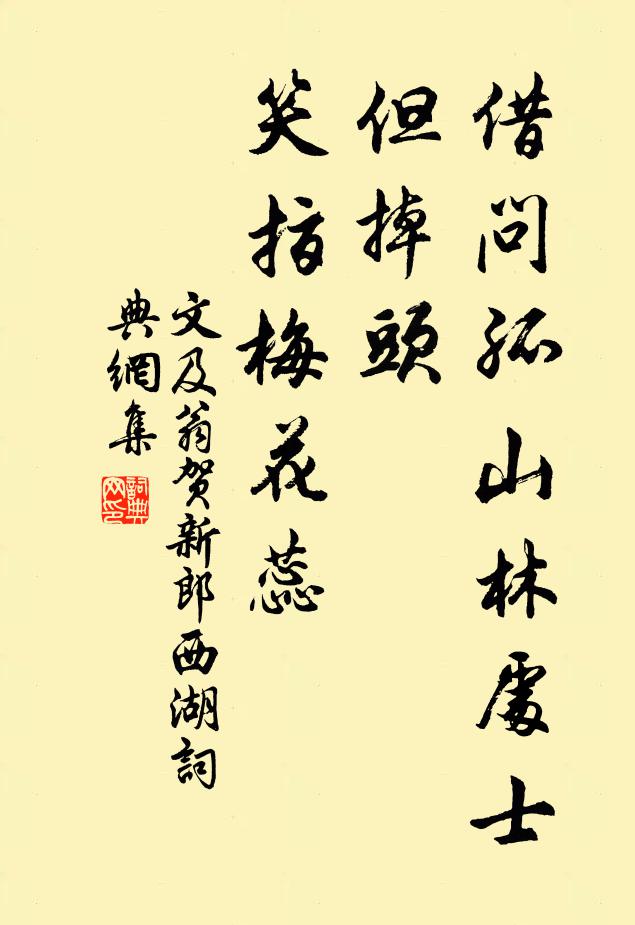 借问孤山林處士
但掉頭
笑指梅花蕊
文及翁贺新郎西湖詞
典網集
詞典网印